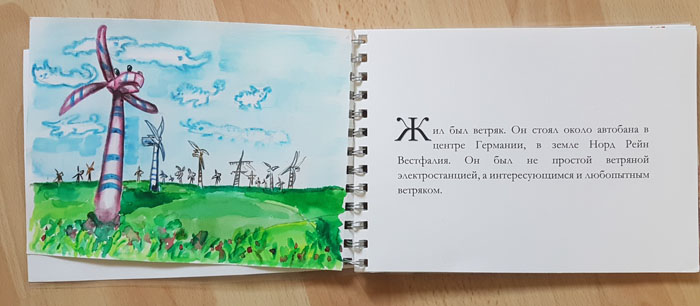 Жил был ветряк. Он стоял около автобана в
центре Германии, в земле Норд Рейн
Вестфалия. Он был не простой ветряной
электростанцией, а интересующимся и любопытным
ветряком.